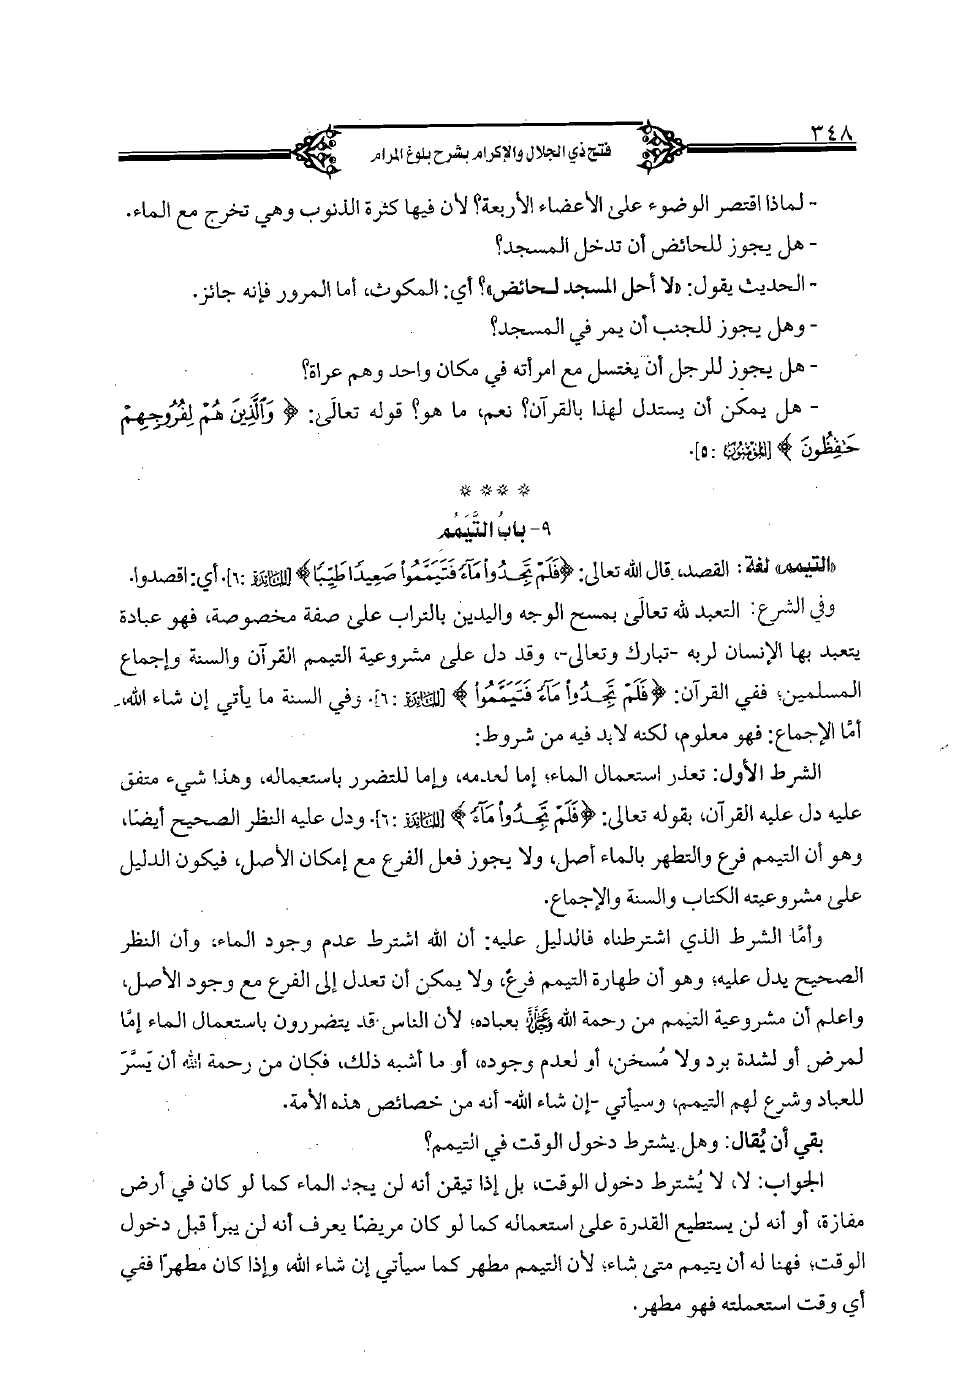 ٣٤٨
فتح ذي الجلال والإكرام بشرح بلوغ المرام
- لماذا اقتصر الوضوء على الأعضاء الأربعة؟ لأن فيها كثرة الذنوب وهي تخرج مع الماء.
- هل يجوز للحائض أن تدخل المسجد؟
- الحديث يقول: «لا أحل المسجد لحائض»؟ أي: المكوث، أما المرور فإنه جائز.
- وهل يجوز للجنب أن يمر في المسجد؟
- هل يجوز للرجل أن يغتسل مع امرأته في مكان واحد وهم عراة؟
- هل يمكن أن يستدل لهذا بالقرآن؟ نعم، ما هو؟ قوله تعالى: ﴿ وَٱلَّذِينَ هُمْ لِفُرُوجِهِمْ
حَٰفِظُونَ ﴾ [المؤمنون: ٥].
* * * *
٩- بابُ التَّيَمُم
«التيمم» لغة: القصد، قال الله تعالى: ﴿فَلَمْ تَجِدُوا۟ مَآءً فَتَيَمَّمُوا۟ صَعِيدًا طَيِّبًا﴾ [المائدة: ٦]. أي: اقصدوا.
وفي الشرع: التعبد لله تعالى بمسح الوجه واليدين بالتراب على صفة مخصوصة، فهو عبادة
يتعبد بها الإنسان لربه -تبارك وتعالى-، وقد دل على مشروعية التيمم القرآن والسنة وإجماع
المسلمين؛ ففي القرآن: ﴿فَلَمْ تَجِدُوا۟ مَآءً فَتَيَمَّمُوا۟ ﴾ [المائدة: ٦]. وفي السنة ما يأتي إن شاء الله،
أمَّا الإجماع: فهو معلوم، لكنه لابد فيه من شروط:
الشرط الأول: تعذر استعمال الماء؛ إما لعدمه، وإما للتضرر باستعماله، وهذا شيء متفق
عليه دل عليه القرآن، بقوله تعالى: ﴿فَلَمْ تَجِدُوا۟ مَآءً ﴾ [المائدة: ٦]. ودل عليه النظر الصحيح أيضًا،
وهو أن التيمم فرع والتطهر بالماء أصل، ولا يجوز فعل الفرع مع إمكان الأصل، فيكون الدليل
على مشروعيته الكتاب والسنة والإجماع.
وأمَّا الشرط الذي اشترطناه فالدليل عليه: أن الله اشترط عدم وجود الماء، وأن النظر
الصحيح يدل عليه؛ وهو أن طهارة التيمم فرعٌ، ولا يمكن أن تعدل إلى الفرع مع وجود الأصل،
واعلم أن مشروعية التيمم من رحمة الله عَزَّوَجَلَّ بعباده؛ لأن الناس قد يتضررون باستعمال الماء إمَّا
لمرض أو لشدة برد ولا مُسخن، أو لعدم وجوده، أو ما أشبه ذلك، فكان من رحمة الله أن يَسَّرَ
للعباد وشرع لهم التيمم، وسيأتي -إن شاء الله- أنه من خصائص هذه الأمة.
بقي أن يُقال: وهل يشترط دخول الوقت في التيمم؟
الجواب: لا، لا يُشترط دخول الوقت، بل إذا تيقن أنه لن يجد الماء كما لو كان في أرض
مفازة، أو أنه لن يستطيع القدرة على استعماله كما لو كان مريضًا يعرف أنه لن يبرأ قبل دخول
الوقت؛ فهنا له أن يتيمم متى شاء؛ لأن التيمم مطهر كما سيأتي إن شاء الله، وإذا كان مطهرًا ففي
أي وقت استعملته فهو مطهر.